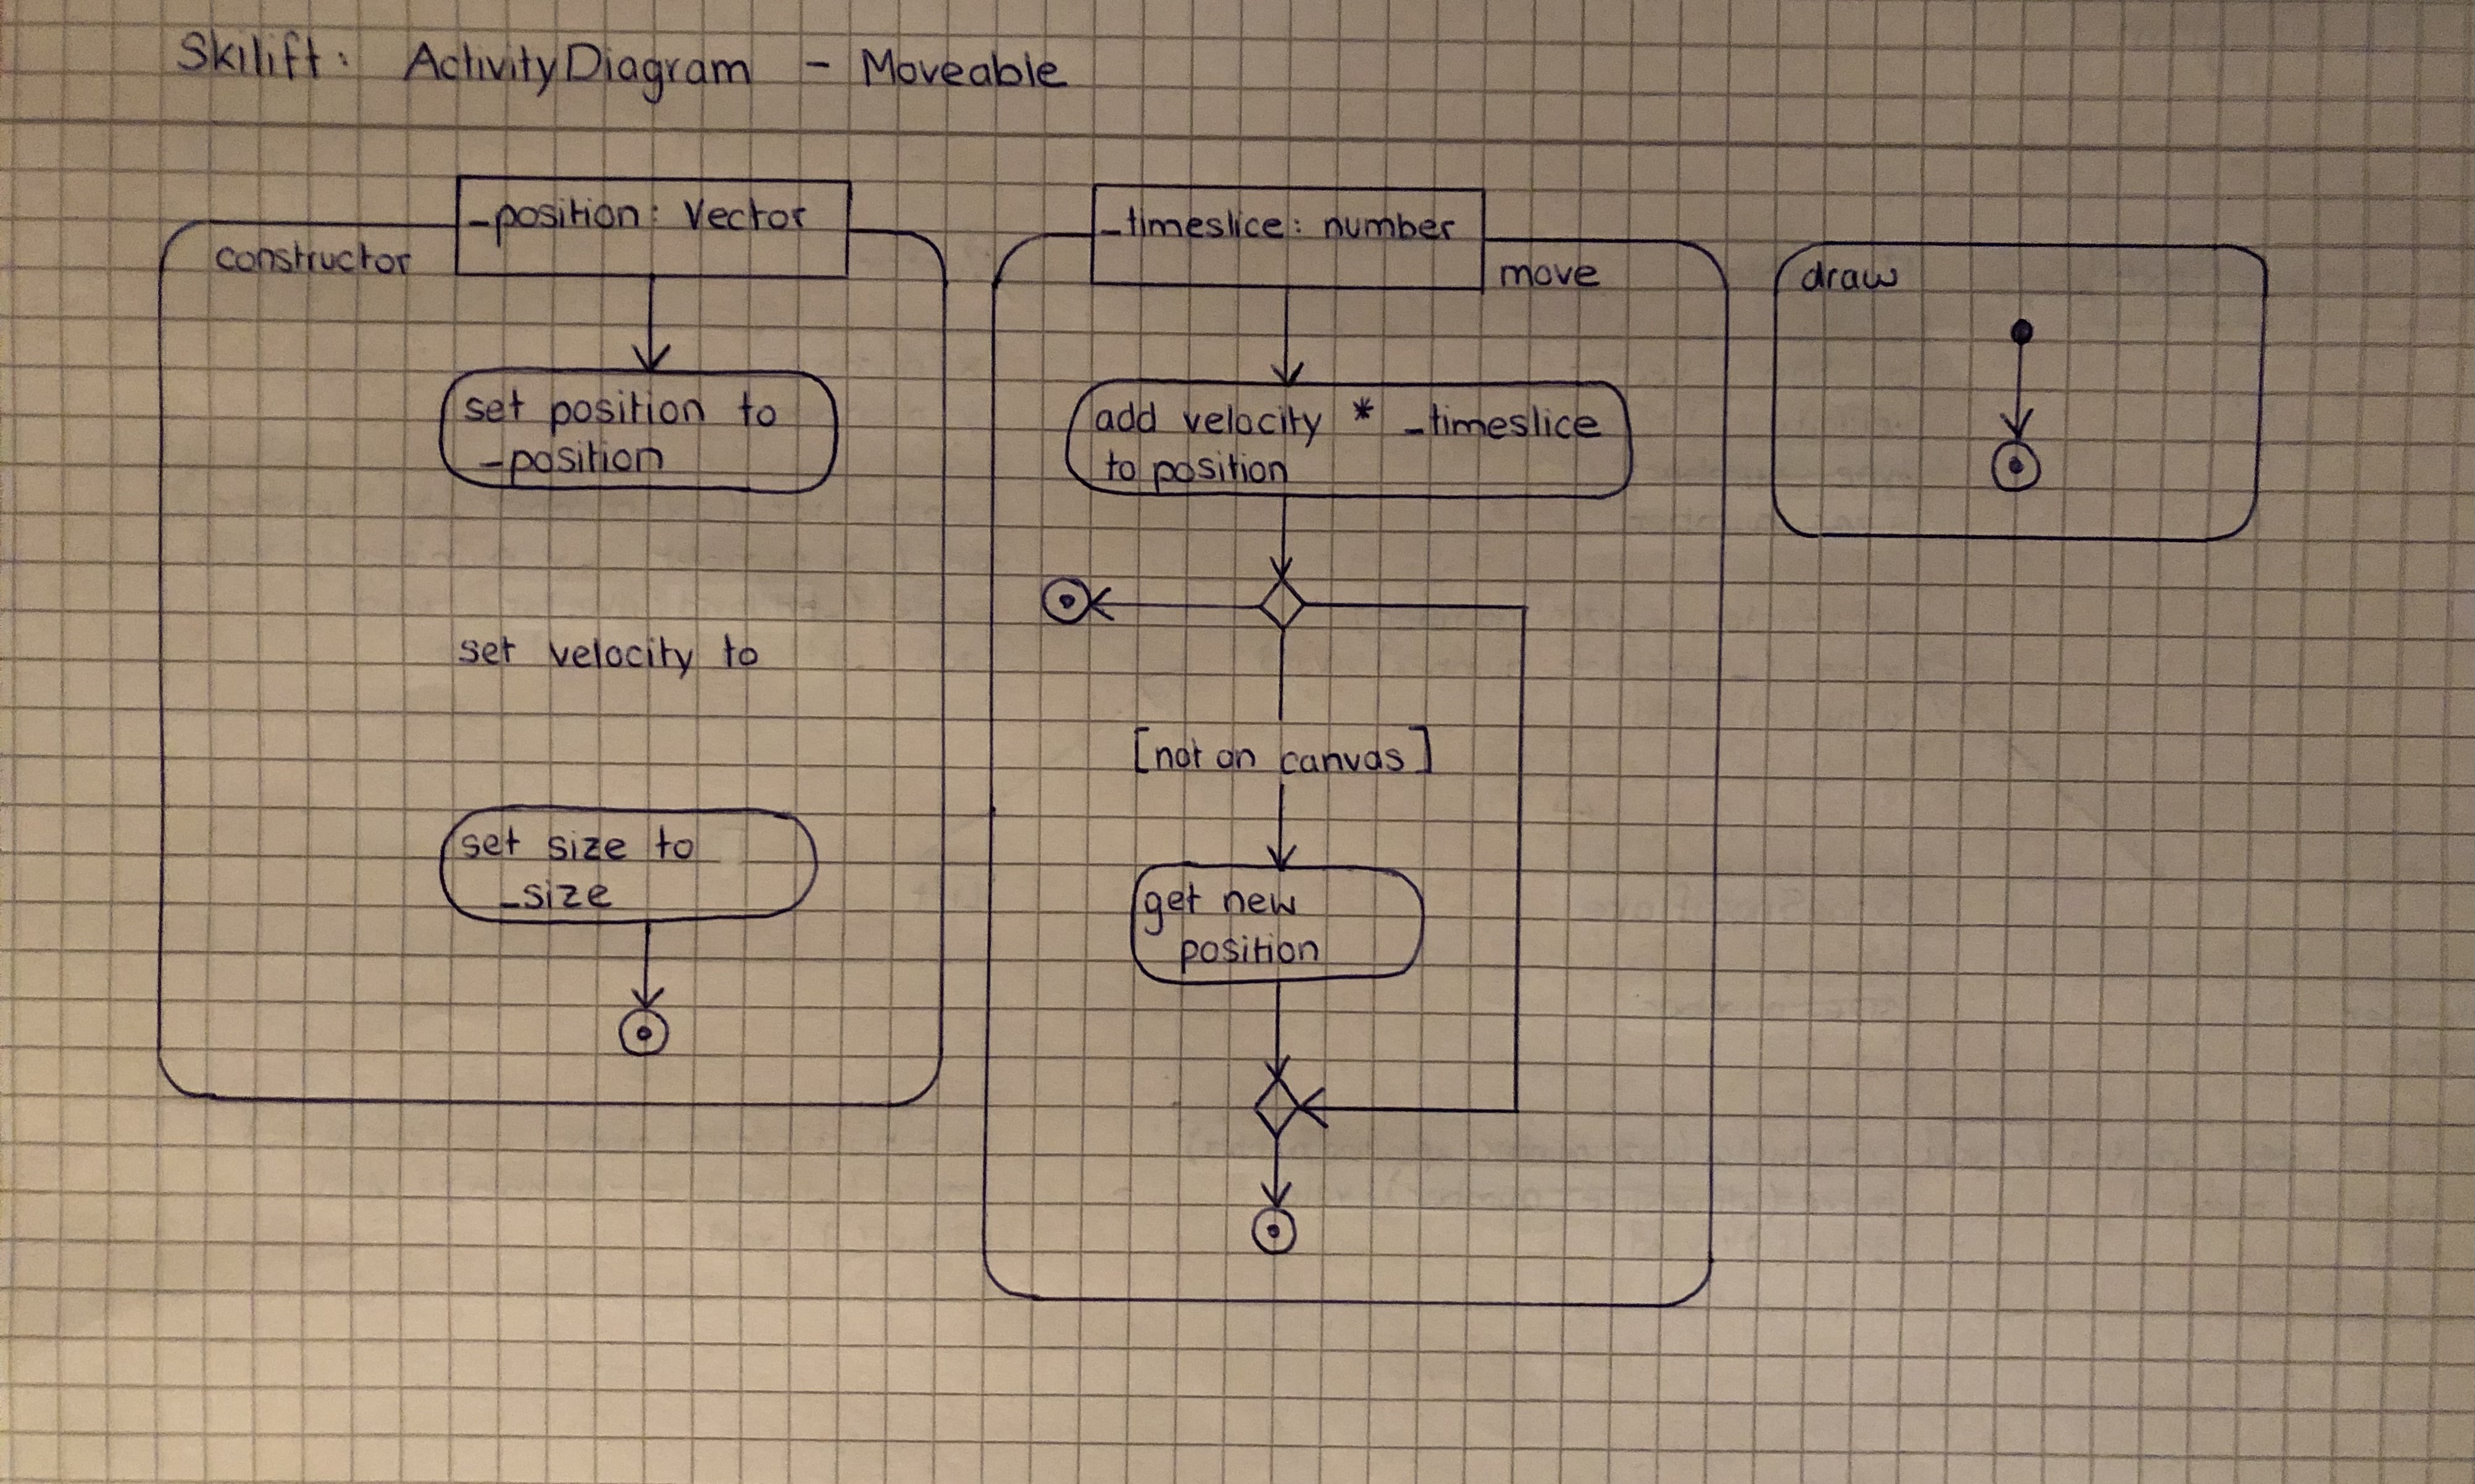 Skilift: ActivityDiagram - Moveable
_position: Vector
constructor
set position to
_position
set velocity to
set size to
_size
_timeslice: number
move
add velocity * _timeslice
to position
[not on canvas]
get new
position
draw